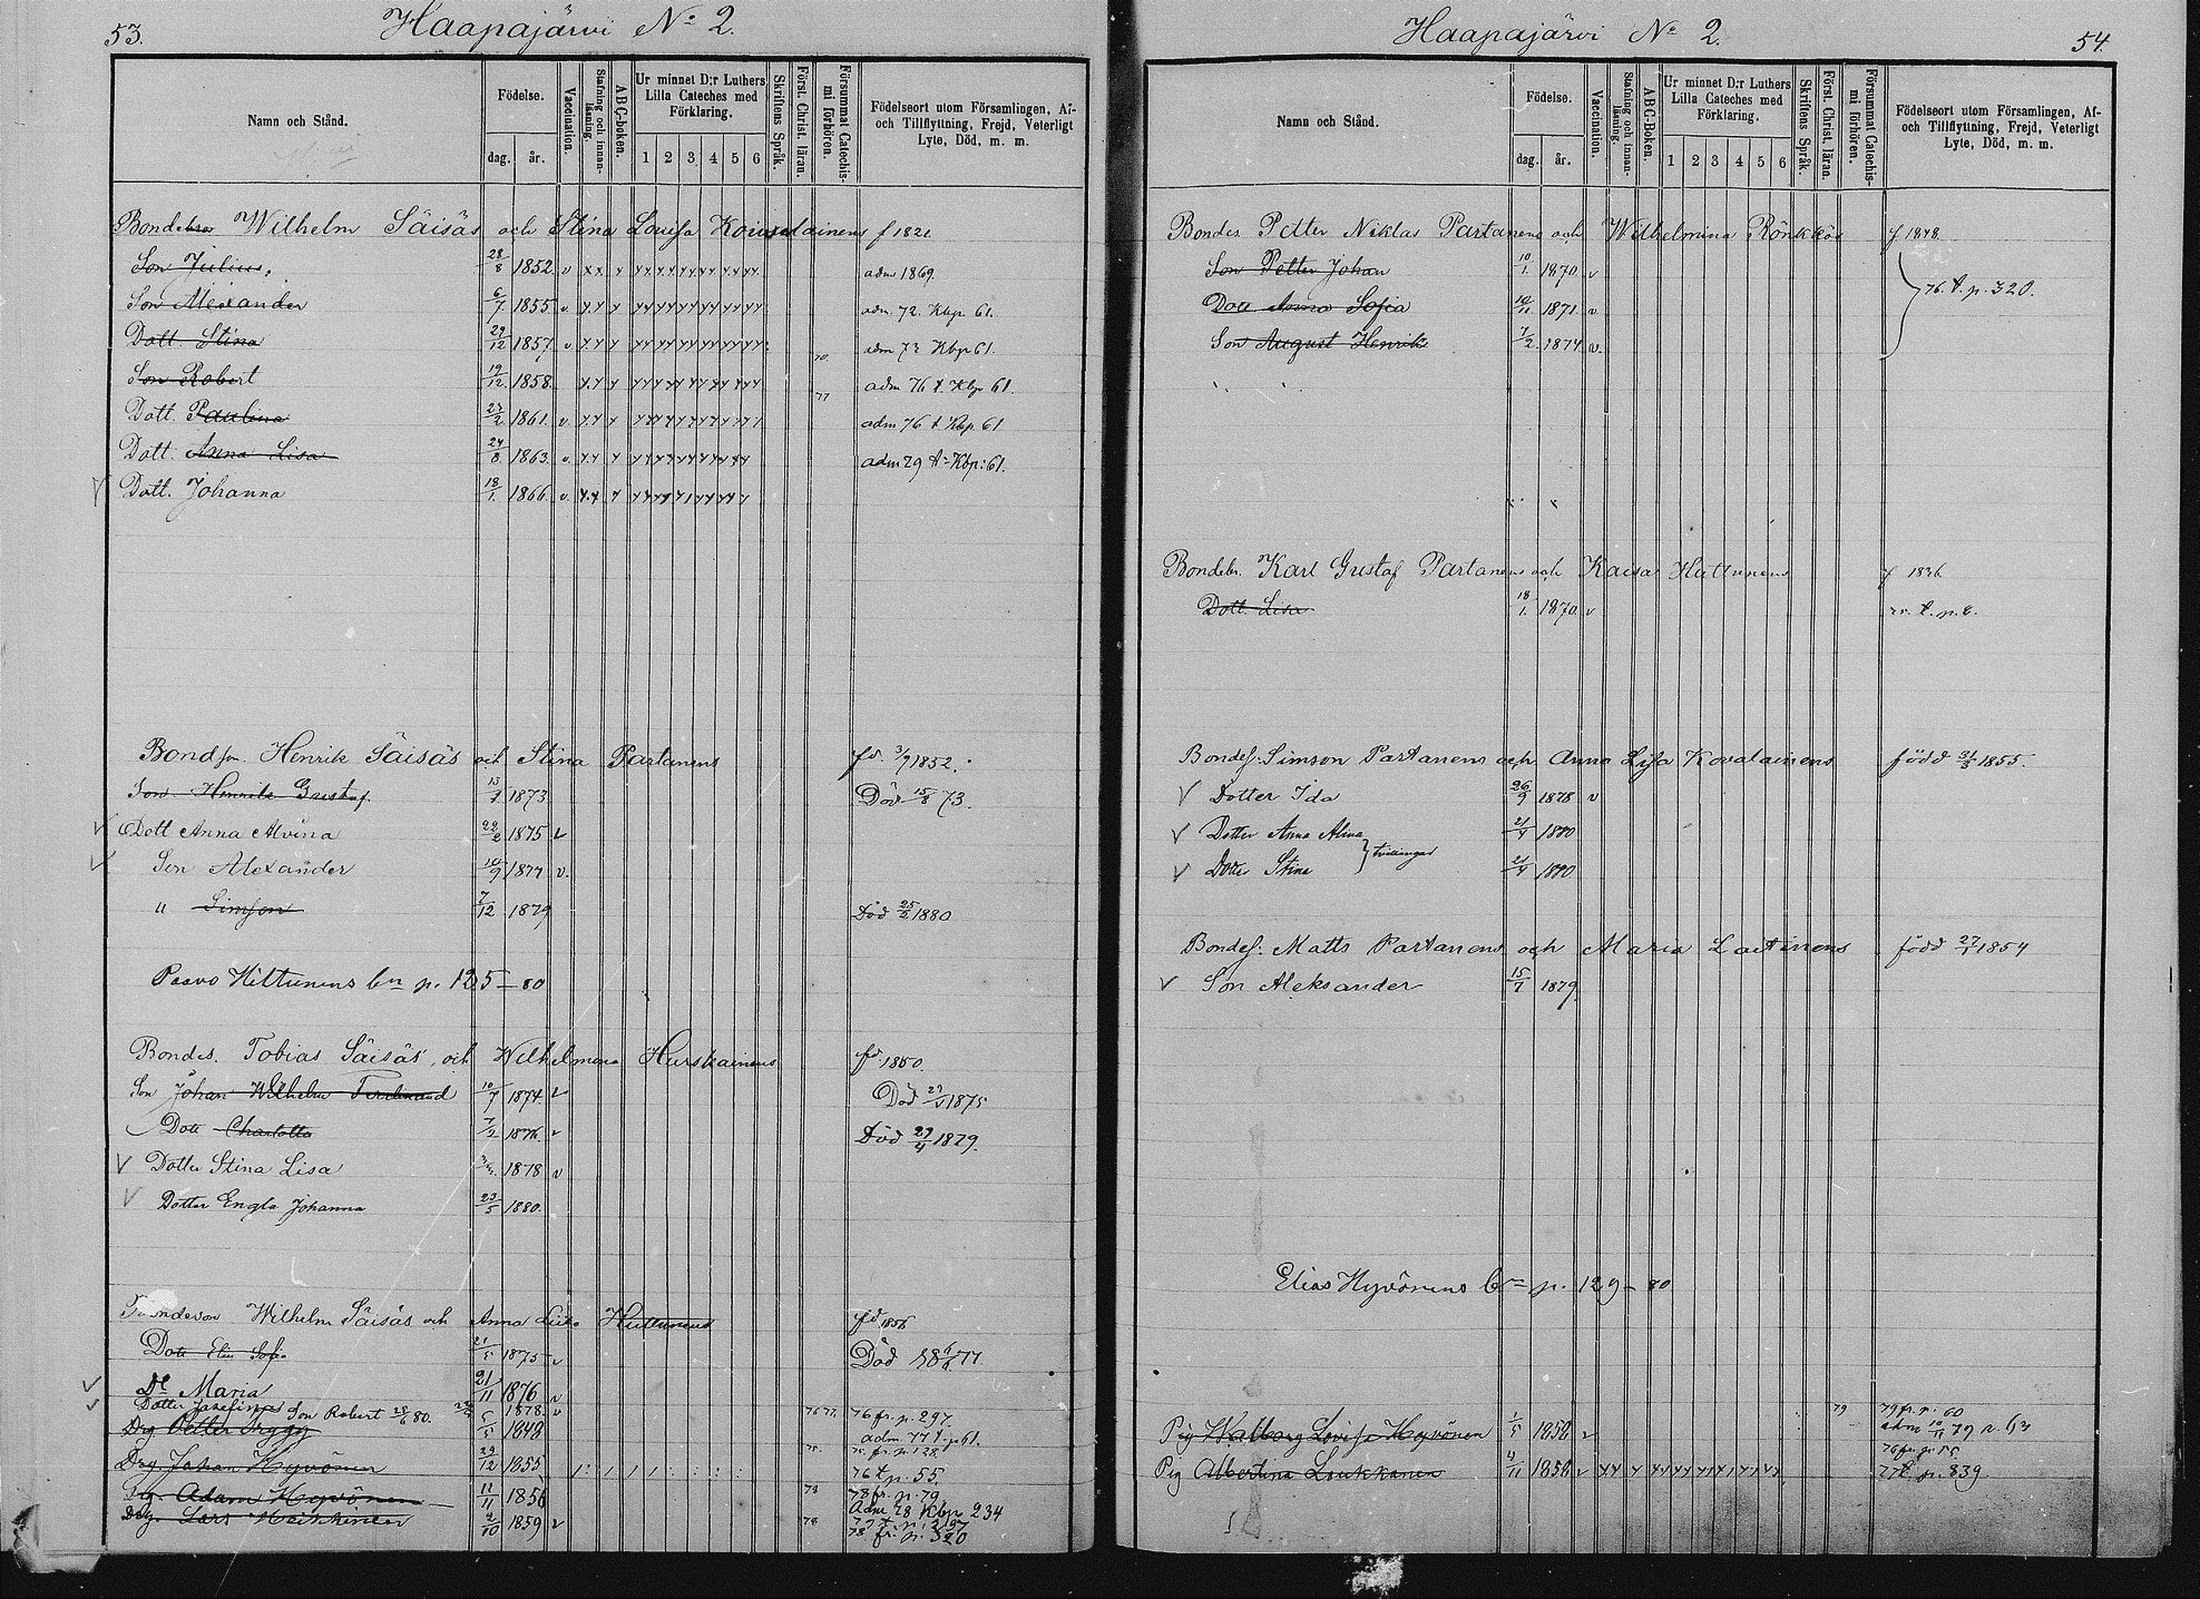 53.
Haapajärvi No 2.
Namn och Stånd.
Födelse.
dag.
år.
Vaccination.
Stafning och innan-läsning.
ABC-boken.
Ur minnet D:r Luthers Lilla Cateches med Förklaring.
1 2 3 4 5 6
Skriftens Språk.
Först. Christ. läran.
Försummat Catechis-mi förhören.
Födelseort utom Församlingen, Af- och Tillflyttning, Frejd, Veterligt Lyte, Död, m. m.
Wilhelm Säisäs och Stina Lovisa f 1821.
Son Julius. 28/8 1852 v adm 1869.
Son Alexander 6/7 1855 v adm. 72. Kbp. 61.
Dott. Stina 29/12 1857 v adm 73 Kbp 61.
Son Robert 19/12 1858 70. adm 76 t. Kbp 61.
Dott. Paulina 23/2 1861 v 77 adm 76 t Kbp. 61
Dott. Anna Lisa 24/8 1863 v adm 79 t. Kbp: 61.
Dott. Johanna 18/1 1866 v
Henrik Säisäs och Stina Partanens fd. 3/9 1852.
Son Henrik Gustaf. 1873 Död 15/8 73.
Dott Anna Alvina 22/2 1875 v
Son Alexander 1877 v.
" Simson 7/12 1879 Död 25/2 1880
Paavo Hiltunens bn p. 125 - 80
Bondes. Tobias Säisäs och Wilhelmina Hurskainens fd. 1850.
Son Johan Wilhelm Ferdinand 10/7 1874 v Död 1875
Dott Charlotta 1876 v Död 29/4 1879.
Dotter Stina Lisa 1878 v
Dotter Engla Johanna 23/5 1880.
Wilhelm Säisäs och Anna Lisa Huttunens fd 1856
Dott Elin Sofia 21/5 1875 v Död 77.
Dr Maria 21/11 1876 v
Dotter Josefina 1878 v Son Robert 28/6 80.
Drg Petter 1848 76 77. 76 fr. p. 297. adm. 77 t. p 61.
Drg. Johan Hyvönen 29/12 1855 75. 75. fr. p. 128. 76 t p. 55
Drg. Adam Hyvönen 11/11 1856 78 78 fr. p. 79 Adm 78 Kbp 234
Drg. Lars Heikkinen 2/10 1859 v 78 78 fr. p. 520
Haapajärvi No 2.
54.
Namn och Stånd.
Födelse.
dag.
år.
Vaccination.
Stafning och innan-läsning.
ABC-Boken.
Ur minnet D:r Luthers Lilla Cateches med Förklaring.
1 2 3 4 5 6
Skriftens Språk.
Först. Christ. läran.
Försummat Catechis-mi förhören.
Födelseort utom Församlingen, Af- och Tillflyttning, Frejd, Veterligt Lyte, Död, m. m.
Bondes Petter Niklas Partanens och Wilhelmina Rönkkös f 1848.
Son Petter Johan 10/1 1870 v
Dott Anna Sofia 10/11 1871 v 76. t. p. 320.
Son August Henrik 7/2 1874 v.
Bondebr. Karl Gustaf Partanens och Kaisa Huttunens f 1836.
Dott. Lisa 18/1 1870 v t. p. 8.
Bondes: Simson Partanens och Anna Lisa Kovalainens född 31/3 1855.
Dotter Ida 26/9 1878 v
Dotter Anna Alma 21/4 1880
Dotter Stina 21/4 1880 tvillingar
Bondes: Matts Partanens och Maria Laitinens född 1854
Son Aleksander 15/7 1879
Elias Hyvönens bn p. 129 - 80
Pig Walborg Lovisa Hyvönen 1/5 1858 v 79 79 fr. p. 60 adm 79 p. 63
Pig Albertina Laukkanen 4/11 1858 v 76 fr. p. 55 77 t. p. 839